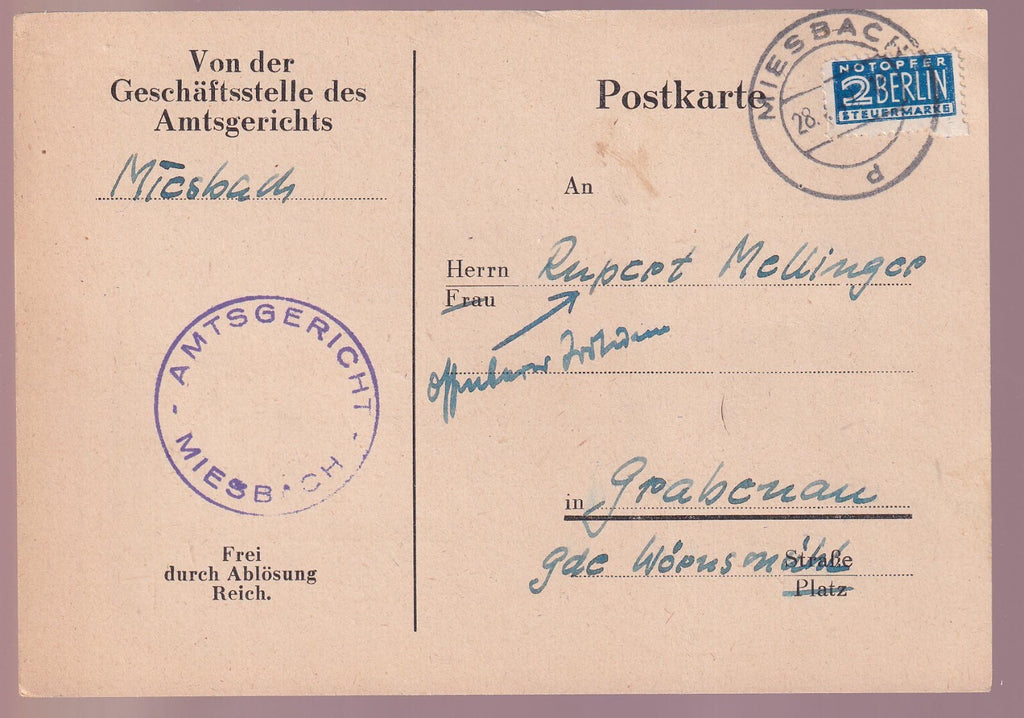 Von der
Geschäftsstelle des
Amtsgerichts
Miesbach
AMTSGERICHT
- MIESBACH -
Frei
durch Ablösung
Reich.
Postkarte
MIESBACH
28.
p
NOTOPFER
2 BERLIN
STEUERMARKE
An
Herrn Rupert Mellinger
Frau
offenbarer Irrtum
in Grabenau
gde Wörnsmühl Straße
Platz